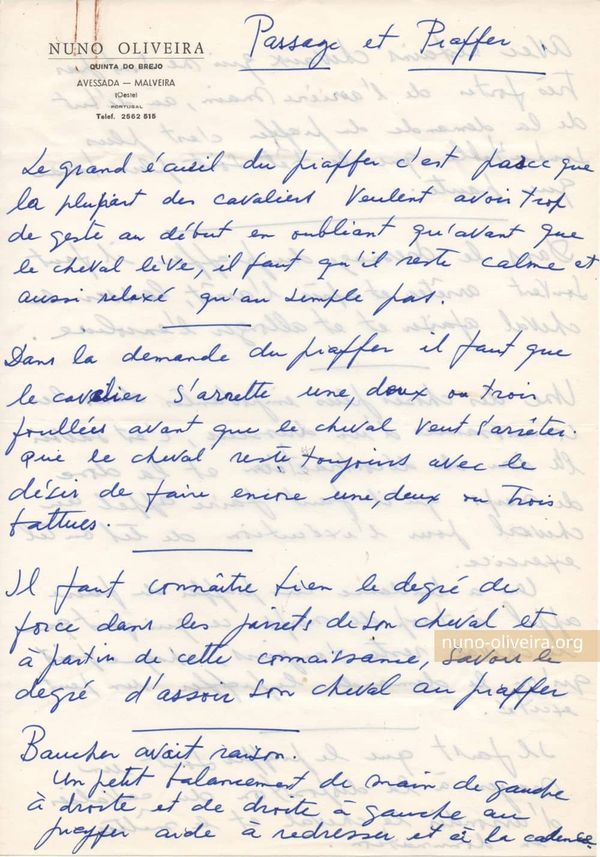 NUNO OLIVEIRA
QUINTA DO BREJO
AVESSADA — MALVEIRA
(Oeste)
PORTUGAL
Telef. 2662 515
Passage et Piaffer.
Le grand écueil du piaffer c'est parce que
la plupart des cavaliers veulent avoir trop
de geste au début en oubliant qu'avant que
le cheval lève, il faut qu'il reste calme et
aussi relaxé qu'au simple pas.
Dans la demande du piaffer il faut que
le cavalier s'arrette une, deux ou trois
foullées avant que le cheval veut s'arrêter.
Que le cheval reste toujours avec le
désir de faire encore une, deux ou trois
battues.
Il faut connaître bien le degré de
force dans les jarrets de son cheval et
nuno-oliveira.org
à partir de cette connaissance, savoir le
degré d'assoir son cheval au piaffer
Baucher avait raison.
Un petit balancement de main de gauche
à droite et de droite à gauche au
piaffer aide à redresser et à la cadence